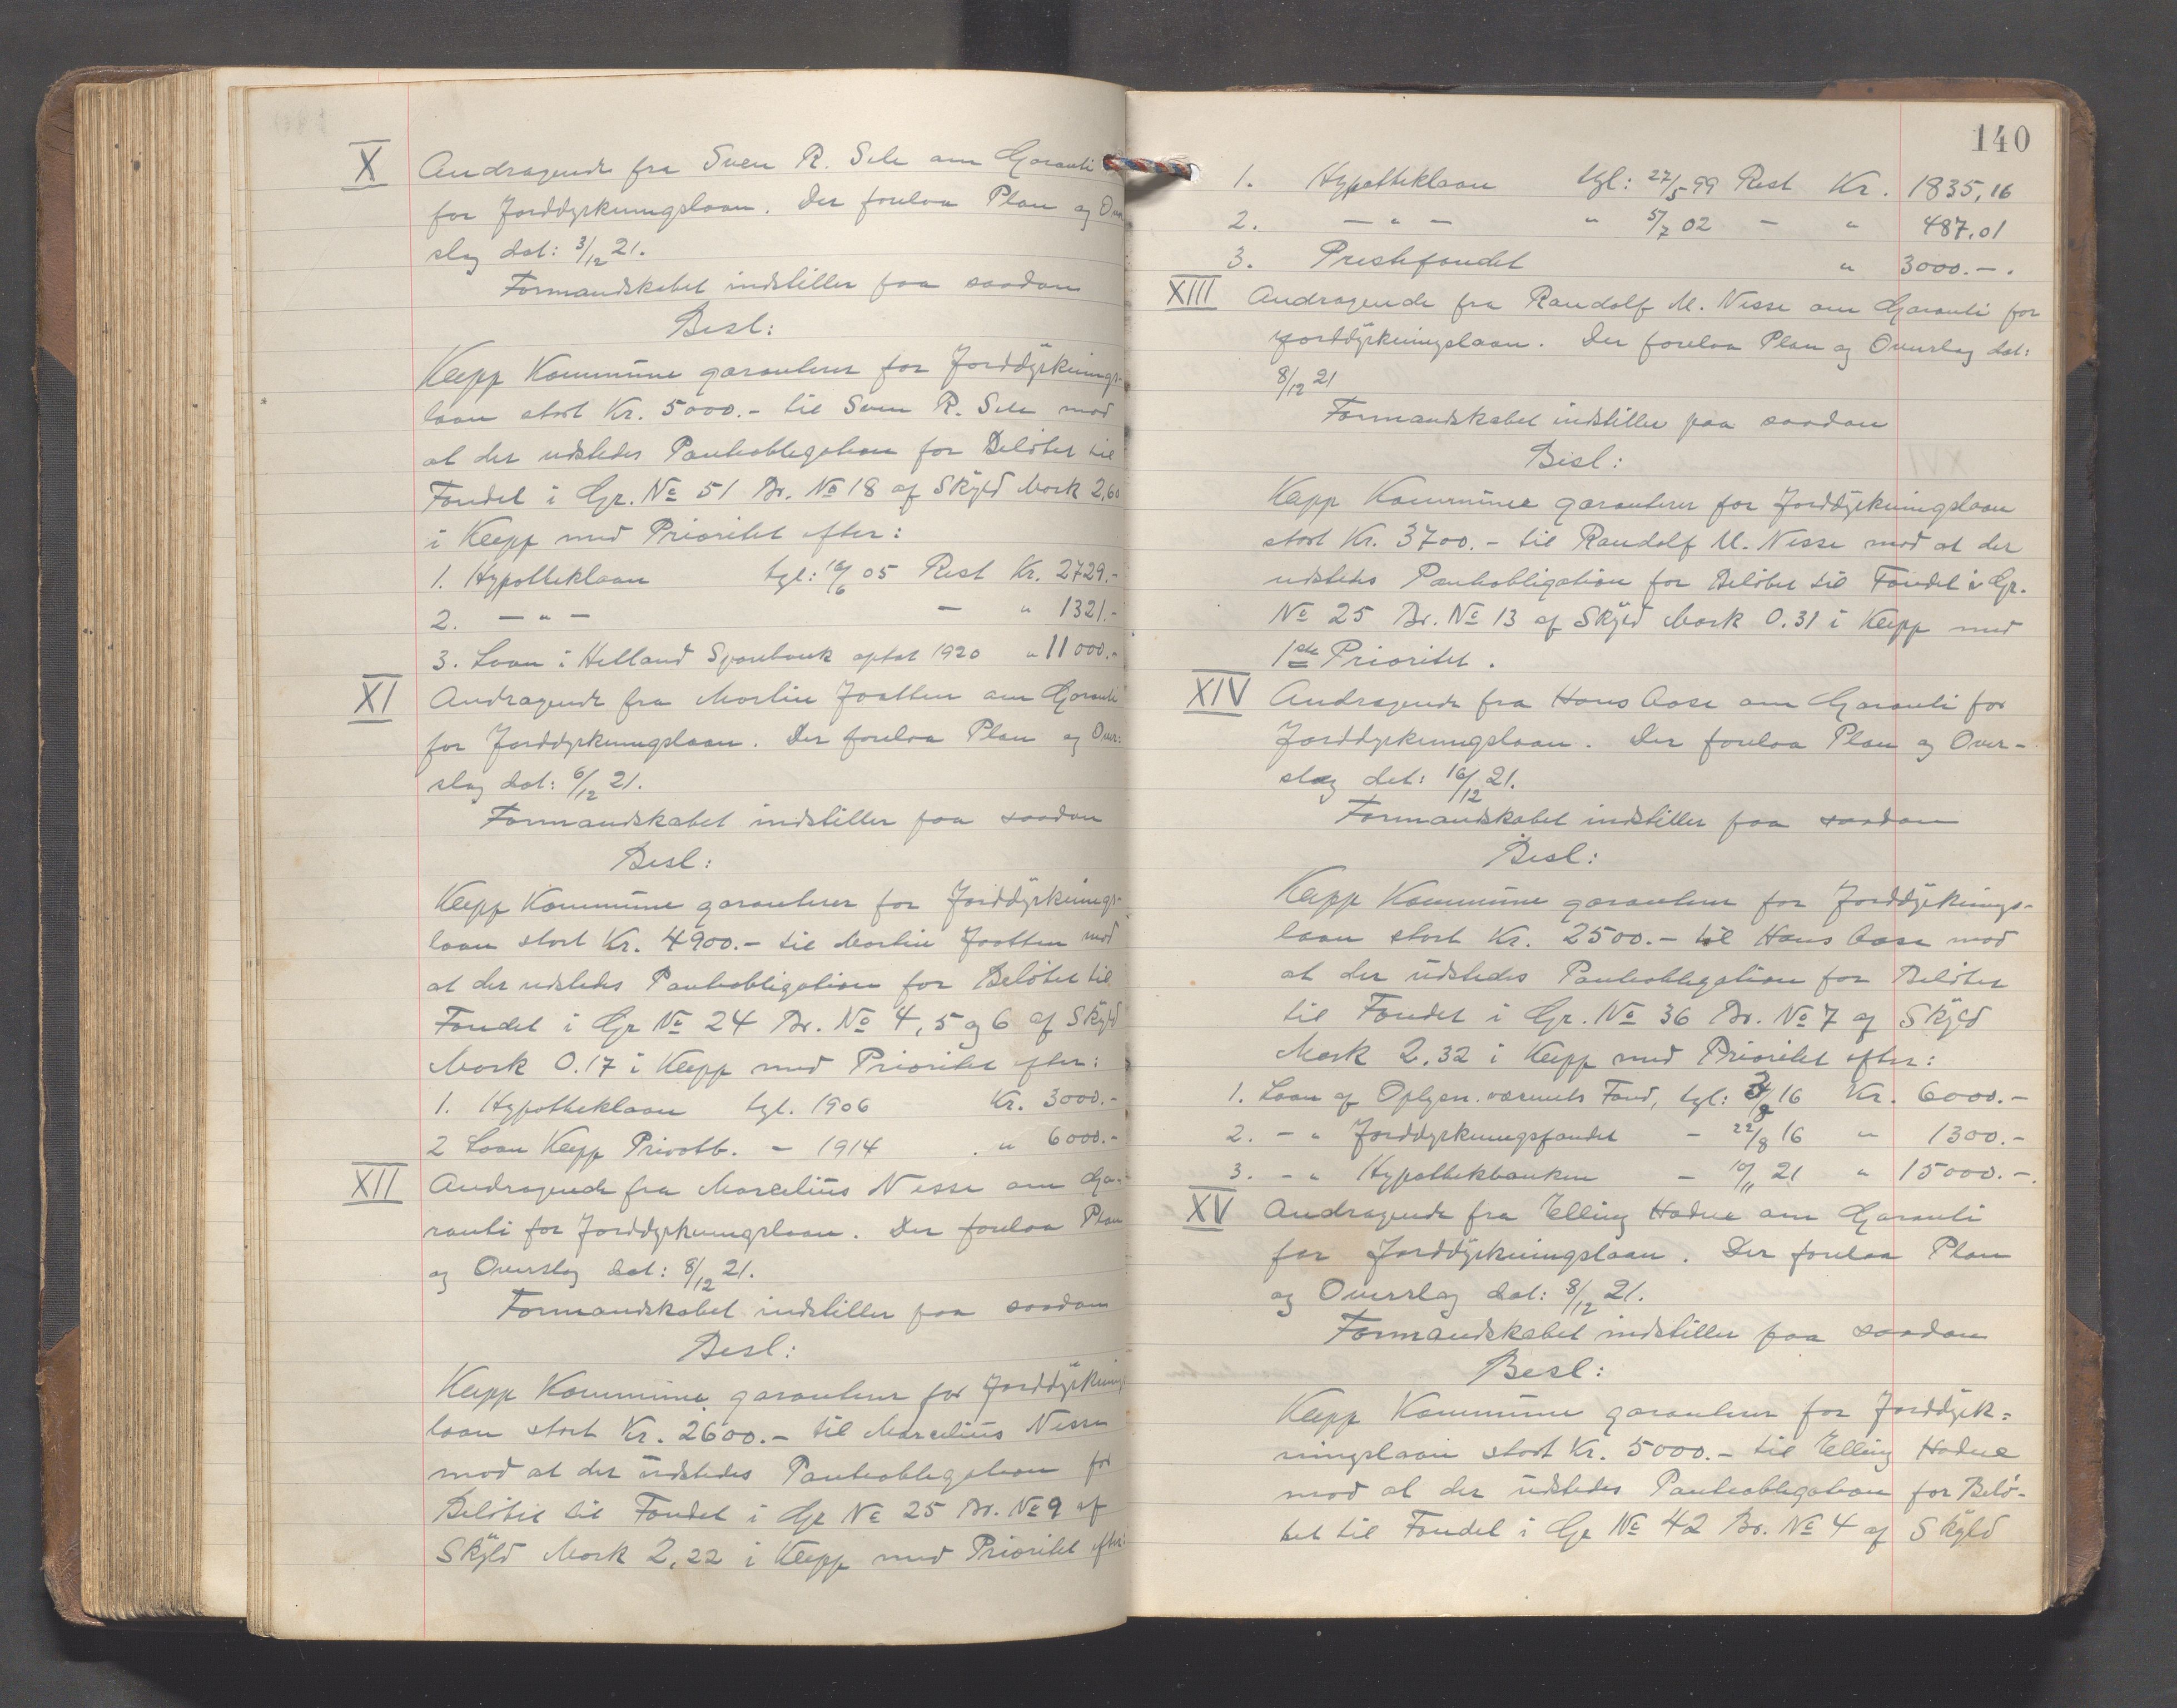 X Andragende fra Sven R. Sele om Garanti
for Jorddyrkningslaan. Der forelaa Plan og Over
slag dat: 3/12 21.
Formandskabet indstiller paa saadan
Besl:
Klepp Kommune garanterer for Jorddyrknings-
laan stort Kr. 5000.- til Sven R. Sele mod
at der udstedes Panteobligation for Beløbet til
Fondet i Gr. No 51 Br. No 18 af Skyld Mark 2,60
i Klepp med Prioritet efter:
1. Hypotheklaan tgl: 16/6 05 Rest Kr. 2729.-
2. - " - - " 1321.-
3. Laan i Helland Sparebank optat 1920 " 11000.-
XI Andragende fra Martin Jaatten om Garanti
for Jorddyrkningslaan. Der forelaa Plan og Over:
slag dat: 6/12 21.
Formandskabet indstiller paa saadan
Besl:
Klepp Kommune garanterer for Jorddyrknings-
laan stort Kr. 4900.- til Martin Jaatten mod
at der udstedes Panteobligation for Beløbet til
Fondet i Gr No 24 Br. No 4, 5 og 6 af Skyld
Mark 0.17 i Klepp med Prioritet efter:
1. Hypotheklaan tgl. 1906 Kr. 3000.-
2 Laan Klepp Privatb. - 1914 . " 6000.-
XII Andragende fra Marselius Nesse om Ga-
ranti for Jorddyrkningslaan. Der forelaa Plan
og Overslag dat: 8/12 21.
Formandskabet indstiller paa saadan
Besl:
Klepp Kommune garanterer for Jorddyrknings
laan stort Kr. 2600.- til Marselius Nesse
mod at der udstedes Panteobligation for
Beløbet til Fondet i Gr No 25 Br. No 9 af
Skyld Mark 2,22 i Klepp med Prioritet efter:
140
1. Hypotheklaan tgl: 27/5 99 Rest Kr. 1835,16
2. - " - " 5/7 02 - " 487.01
3. Prestefondet " 3000.-.
XIII Andragende fra Randolf M. Nesse om Garanti for
Jorddyrkningslaan. Der forelaa Plan og Overslag dat:
8/12 21
Formandskabet indstiller paa saadan
Besl:
Klepp Kommune garanterer for Jorddyrkningslaan
stort Kr. 3700.- til Randolf M. Nesse mod at der
udstedes Panteobligation for Beløbet til Fondet i Gr.
No 25 Br. No 13 af Skyld Mark 0.31 i Klepp med
1ste Prioritet.
XIV Andragende fra Hans Aase om Garanti for
Jorddyrkningslaan. Der forelaa Plan og Over-
slag dat: 16/12 21.
Formandskabet indstiller paa saadan
Besl:
Klepp Kommune garanterer for Jorddyrknings-
laan stort Kr. 2500.- til Hans Aase mod
at der udstedes Panteobligation for Beløbet
til Fondet i Gr. No 36 Br. No 7 af Skyld
Mark 2.32 i Klepp med Prioritet efter:
1. Laan af Oplysn.væsenets Fond, tgl: 3/8 16 Kr. 6000.-
2. - " Jorddyrkningsfondet - 22/8 16 " 1300.-
3. - " Hypothekbanken - 10/11 21 " 15000.-.
XV Andragende fra Elling Hodne om Garanti
for Jorddyrkningslaan. Der forelaa Plan
og Overslag dat: 8/12 21.
Formandskabet indstiller paa saadan
Besl:
Klepp Kommune garanterer for Jorddyrk=
ningslaan stort Kr. 5000.- til Elling Hodne
mod at der udstedes Panteobligation for Belø-
bet til Fondet i Gr No 42 Br. No 4 af Skyld